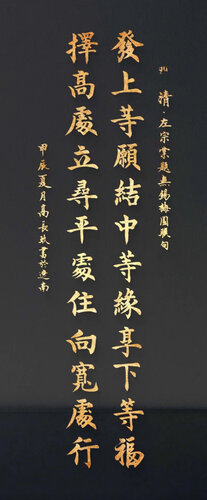 清·左宗棠題無錫梅園聯句
發上等願結中等緣享下等福
擇高處立尋平處住向寬處行
甲辰夏月高長玖書於連南